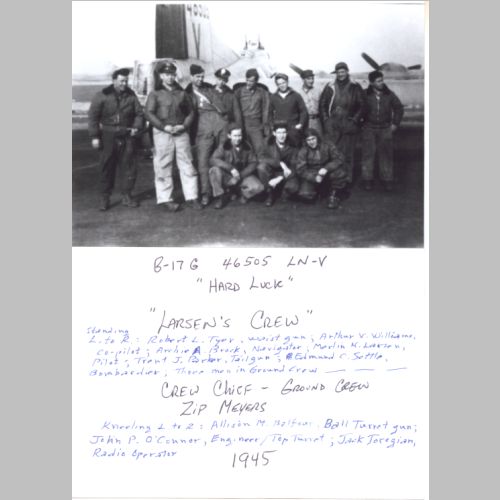 V
B-17G 46505 LN-V
"HARD LUCK"
"LARSEN'S CREW"
Standing
L. to R.: Robert L. Tyer, waist gun; Arthur V. Williams,
Co-pilot; Archie Brock, Navigator; Merlin K. Larsen,
Pilot; Trent J. Parker, Tail gun; Edmund C. Settle,
Bombardier, Three men in Ground Crew — — —
CREW CHIEF - GROUND CREW
ZIP MEYERS
Kneeling L to R: Allison M. Balfour, Ball Turret gun;
John P. O'Connor, Engineer/Top Turret; Jack Toregian,
Radio Operator
1945